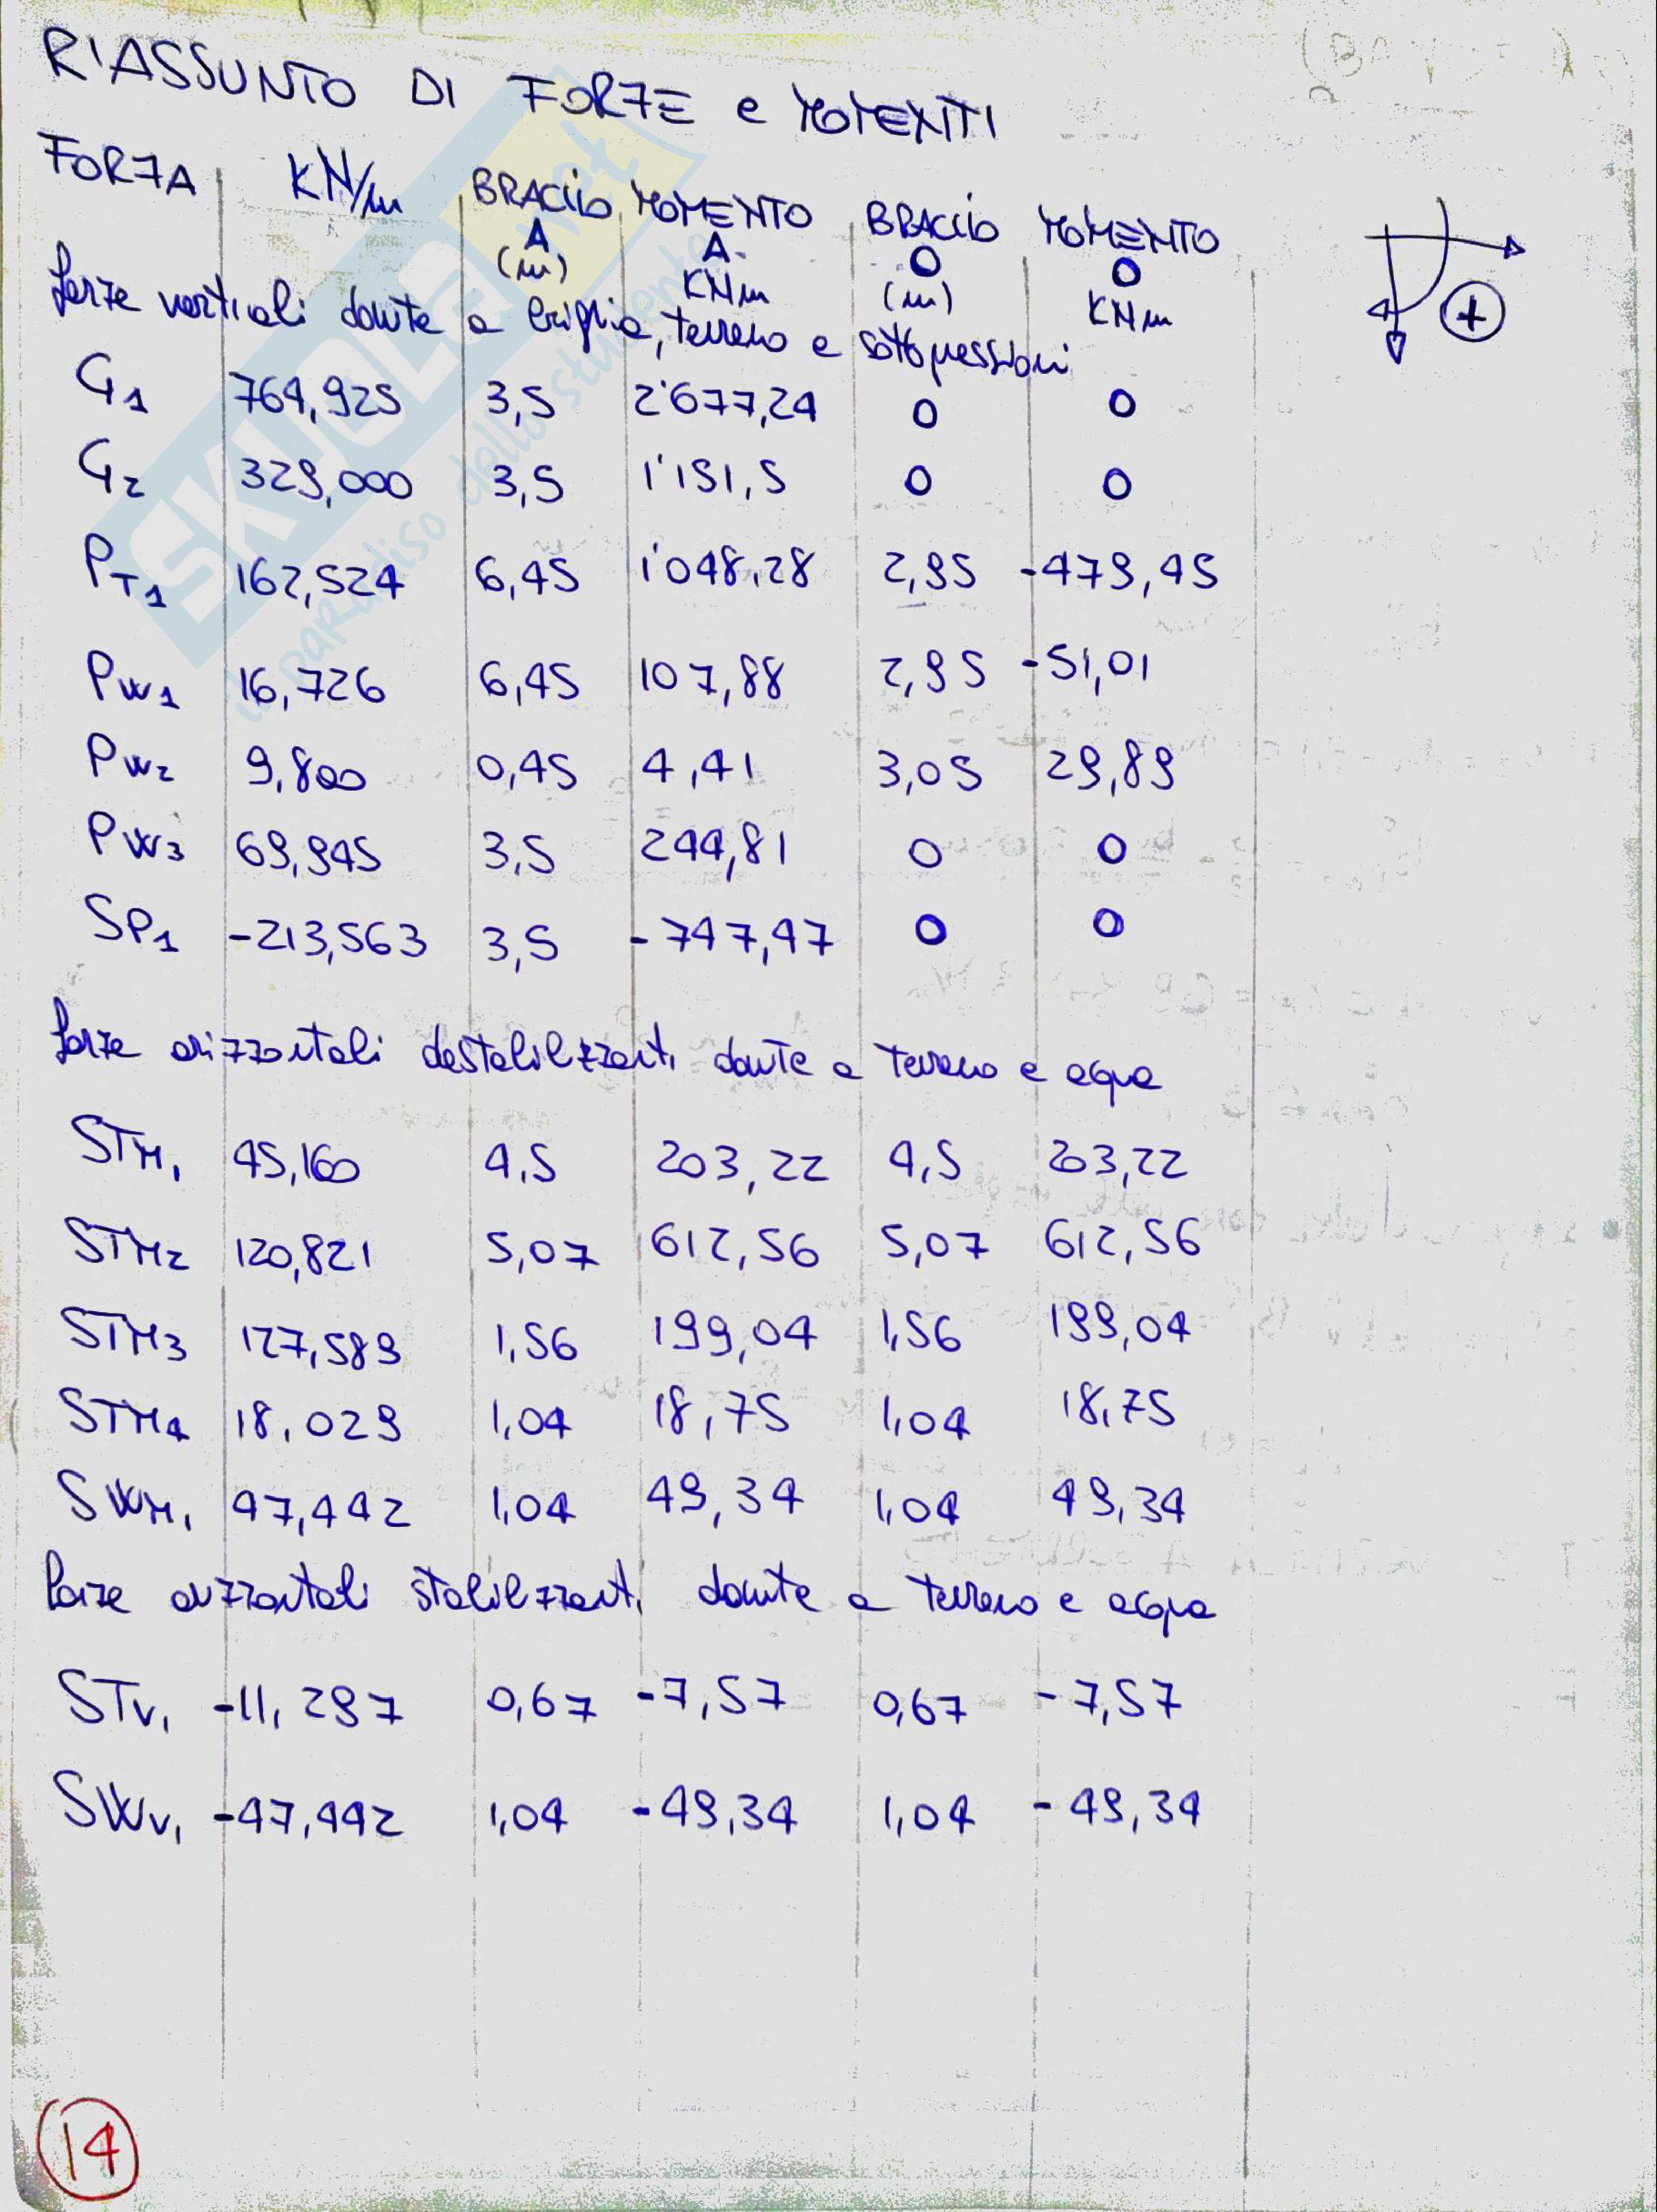 RIASSUNTO DI FORZE e MOMENTI
FORZA KN/m BRACCIO A (m) MOMENTO A KNm BRACCIO O (m) MOMENTO O KNm
+
forze verticali dovute a briglia, terreno e sottopressioni
G1 764,925 3,5 2'677,24 0 0
G2 329,000 3,5 1'151,5 0 0
PT1 162,524 6,45 1'048,28 2,95 -479,45
PW1 16,726 6,45 107,88 2,95 -51,01
PW2 9,800 0,45 4,41 3,05 29,89
PW3 69,945 3,5 244,81 0 0
SP1 -213,563 3,5 -747,47 0 0
forze orizzontali destabilizzanti dovute a terreno e acqua
STM1 45,160 4,5 203,22 4,5 203,22
STM2 120,821 5,07 612,56 5,07 612,56
STM3 127,589 1,56 199,04 1,56 199,04
STM4 18,029 1,04 18,75 1,04 18,75
SWM1 47,442 1,04 49,34 1,04 49,34
forze orizzontali stabilizzanti dovute a terreno e acqua
STV1 -11,297 0,67 -7,57 0,67 -7,57
SWV1 -47,442 1,04 -49,34 1,04 -49,34
14
SKUOLA.net
il paradiso dello studente